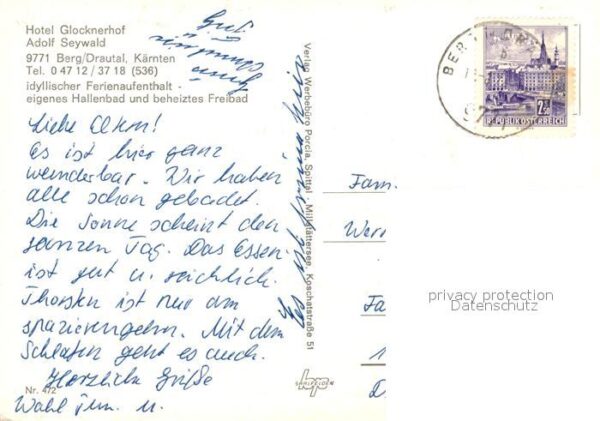 Hotel Glocknerhof
Adolf Seywald
9771 Berg/Drautal, Kärnten
Tel. 0 47 12 / 37 18 (536)
idyllischer Ferienaufenthalt -
eigenes Hallenbad und beheiztes Freibad
Liebe Eltern!
Es ist hier ganz
wunderbar. Wir haben
alle schon gebadet.
Die Sonne scheint den
ganzen Tag. Das Essen
ist gut u. reichlich.
Thorsten ist nur am
spazierengehn. Mit dem
Schlafen geht es auch.
Herzliche Grüße
Nr. 472
Es ist
Verlag Werbebüro Porcia, Spittal - Millstättersee, Koschatstraße 51
BER
977
2.50
REPUBLIK ÖSTERREICH
Fam.
Wer
Fa
1
D
privacy protection
Datenschutz